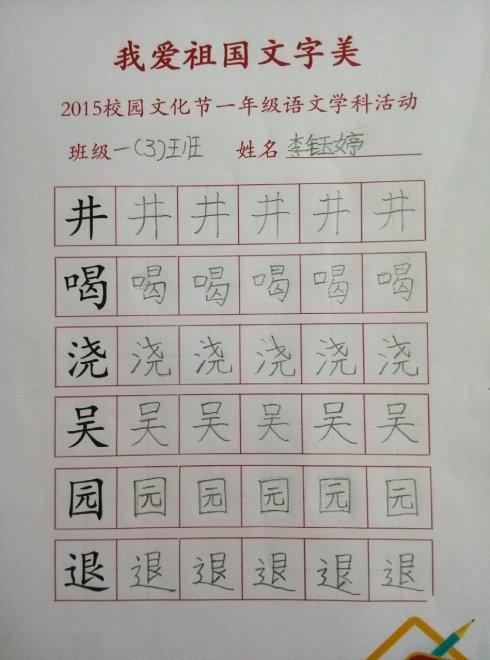 我爱祖国文字美
2015校园文化节一年级语文学科活动
班级一(3)班 姓名李钰婷
井井井井井井
喝喝喝喝喝喝
浇浇浇浇浇浇
吴吴吴吴吴吴
园园园园园园
退退退退退退